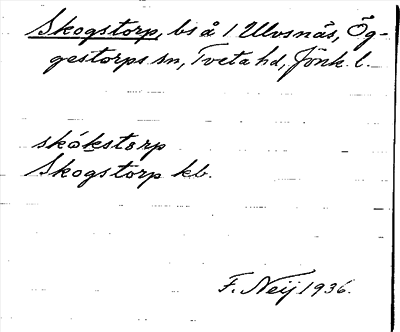 Skogstorp, bs å 1 Ulvsnäs, Ög-
gestorps sn, Tveta hd, Jönk. l.
skókstorp
Skogstorp kb.
F. Neij 1936.